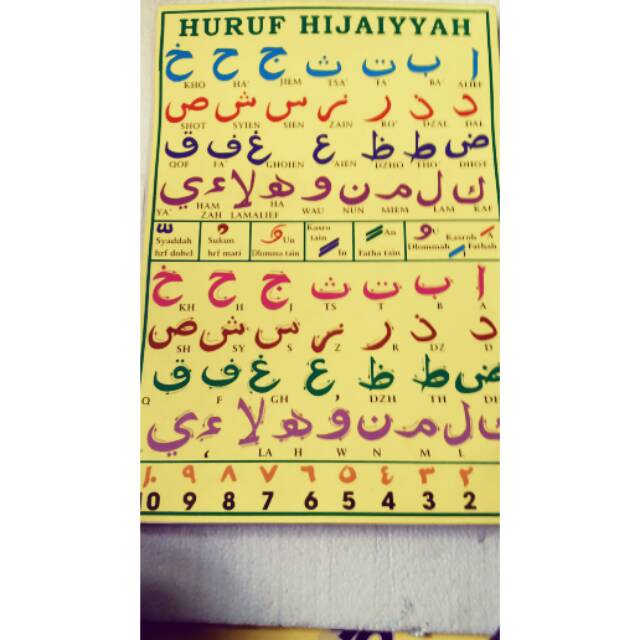 HURUF HIJAIYYAH
ا ب ت ث ج ح خ
KHO HA' JIEM TSA' TA' BA' ALIEF
د ذ ر ز س ش ص
SHOT SYIEN SIEN ZAIN RO' DZAL DAL
ض ط ظ ع غ ف ق
QOF FA' GHOIEN 'AIEN DZHO THO' DHOT
ك ل م ن و ه لا ء ي
YA' HAM ZAH LAMALIEF HA WAU NUN MIEM LAM KAF
Syaddah hrf dobel
Sukun hrf mati
Un Dlomma tain
Kasro tain In
An Fatha tain
U Dlommah Kasroh I A Fathah
ا ب ت ث ج ح خ
KH H J TS T B A
د ذ ر ز س ش ص
SH SY S Z R DZ D
ض ط ظ ع غ ف ق
Q F GH ' DZH TH DH
ك ل م ن و ه لا ء ي
' LA H W N M L
١٠ ٩ ٨ ٧ ٦ ٥ ٤ ٣ ٢
10 9 8 7 6 5 4 3 2